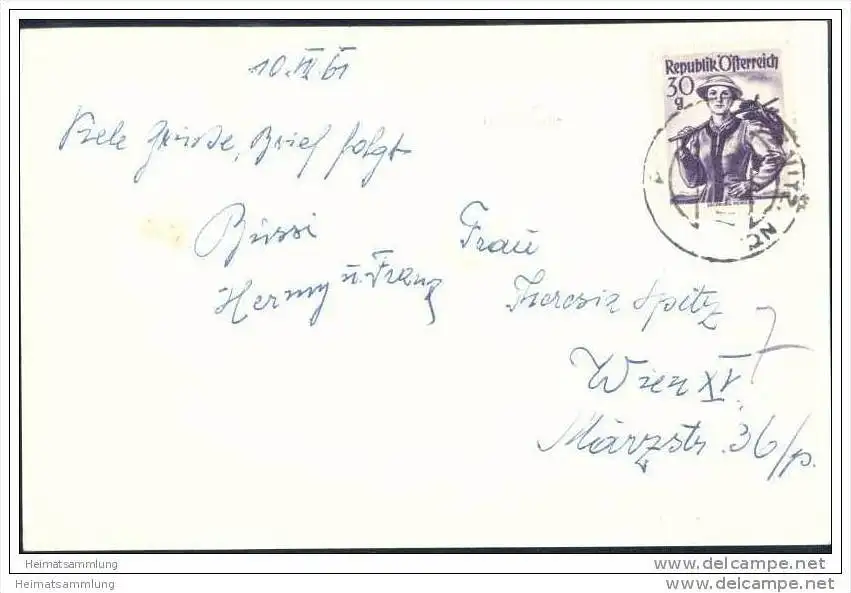 10. VI 61
Viele Grüsse, Brief folgt
Bussi
Hermy u. Franz
Frau
Theresia Spitz
Wien XV.
Märzstr. 36/p.
7
Republik Österreich
30
g
Heimatsammlung
www.delcampe.net
Heimatsammlung
www.delcampe.net